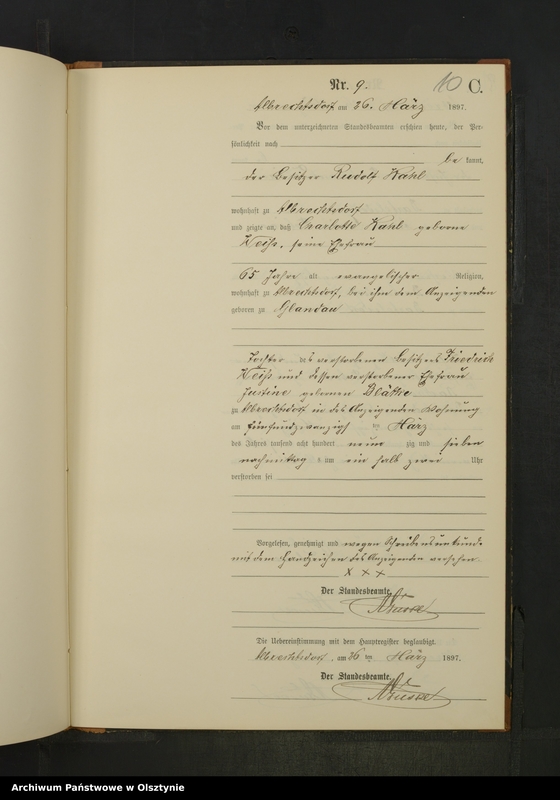 Nr. 9. 10 C.
Albrechtsdorf am 26. März 1897.
Vor dem unterzeichneten Standesbeamten erschien heute, der Per-
sönlichkeit nach
be kannt,
der Besitzer Rudolf Kahl
wohnhaft zu Albrechtsdorf
und zeigte an, daß Charlotte Kahl geborene
Weiß, seine Ehefrau
65 Jahre alt evangelischer Religion,
wohnhaft zu Albrechtsdorf, bei ihm dem Anzeigenden
geboren zu Glandau
Tochter des verstorbenen Besitzers Friedrich
Weiß und dessen verstorbener Ehefrau
Justine geborenen
zu Albrechtsdorf in des Anzeigenden Wohnung
am fünfundzwanzigsten März
des Jahres tausend acht hundert neun zig und sieben
nachmittag s um ein halb zwei Uhr
verstorben sei
Vorgelesen, genehmigt und wegen Schreibensunkunde
mit dem Handzeichen des Anzeigenden versehen.
x x x
Der Standesbeamte.
Die Uebereinstimmung mit dem Hauptregister beglaubigt.
Albrechtsdorf, am 26 ten März 1897.
Der Standesbeamte.
Archiwum Państwowe w Olsztynie